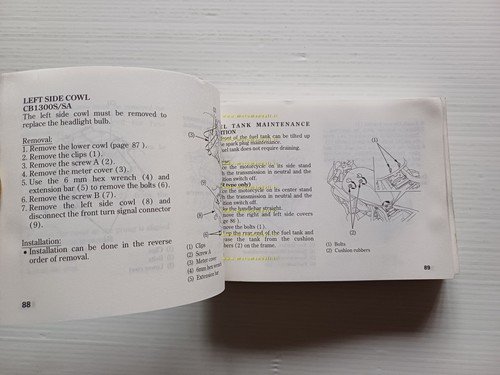 LEFT SIDE COWL
CB1300S/SA
The left side cowl must be removed to
replace the headlight bulb.
Removal:
1. Remove the lower cowl (page 87 ).
2. Remove the clips (1) .
3. Remove the screw A (2) .
4. Remove the meter cover (3) .
5. Use the 6 mm hex wrench (4) and
extension bar (5) to remove the bolts (6).
6. Remove the screw B (7) .
7. Remove the left side cowl (8) and
disconnect the front turn signal connector
(9) .
Installation:
• Installation can be done in the reverse
order of removal.
88
(3)
(9)
(8)
(6)
(1) Clips
(2) Screw A
(3) Meter cover
(4) 6mm hex wrench
(5) Extension bar
TANK MAINTENANCE
front of the fuel tank can be tilted up
spark plug maintenance.
fuel tank does not require draining.
the motorcycle on its side stand
the transmission in neutral and the
switch off.
type only)
the motorcycle on its center stand
the transmission in neutral and the
switch off.
the handlebar straight.
the right and left side covers
86 ) .
the bolts (1) .
the rear end of the fuel tank and
the tank from the cushion
(2) on the frame.
(1)
(2)
(1) Bolts
(2) Cushion rubbers
89